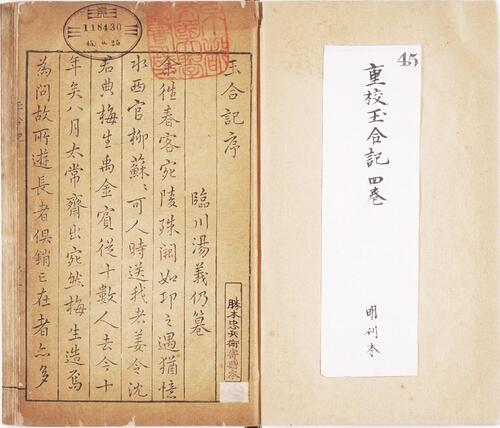 45
重校玉合記 四卷
明刊本
玉合記序
臨川湯義仍篹
余徃春客宛陵殊闕如邛之遇猶憶
水西官柳蘇〻可人時送我者姜令沈
君典梅生禹金賓從十數人去今十
年矣八月太常齋出宛然梅生造焉
為問故所遊長者俱銷亡在者亦多
勝本忠兵衛寄贈本
118430